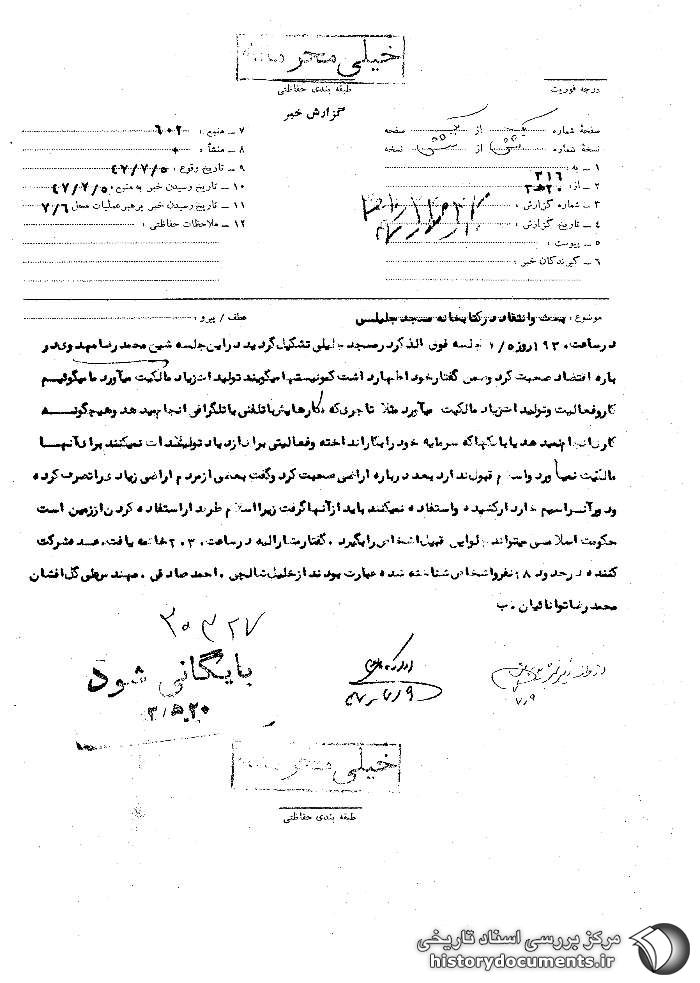 خیلی محرمانه
طبقه بندی حفاظتی
درجه فوریت
گزارش خبر
صفحهٔ شماره از صفحه
نسخهٔ شماره از نسخه
۱ ـ به : ۳۱۶
۲ ـ از : ۲۰ﻫ۳
۳ ـ شماره گزارش :
۴ ـ تاریخ گزارش :
۵ ـ پیوست :
۶ ـ گیرندگان خبر :
۷ ـ منبع : ۶۰۲
۸ ـ منشأ :
۹ ـ تاریخ وقوع : ۴۷/۷/۵
۱۰ ـ تاریخ رسیدن خبر به منبع : ۴۷/۷/۵
۱۱ ـ تاریخ رسیدن خبر برهبر عملیات محل : ۷/۶
۱۲ ـ ملاحظات حفاظتی :
موضوع : بحث وانتقاد درکتابخانه مسجد جلیلی
عطف / پیرو :
درساعت ۱۹۳۰ روز جلسه فوق الذکر درمسجد جلیلی تشکیل گردید دراین جلسه شیخ محمد رضا مهدوی در
باره اقتصاد صحبت کرد وضمن گفتارخود اظهار داشت کمونیستها میگویند تولید ازدیاد مالکیت میآورد ما میگوئیم
کار وفعالیت وتولید ازدیاد مالکیت میآورد مثلا تاجری که کارهایش با تلفنی یا تلگرافی انجام میدهد وهیچگونه
کاری انجام نمیدهد یا بانکها که سرمایه خود را بکار انداخته وفعالیتی برای ازدیاد تولیدات نمیکنند برای آنها
مالکیت نمیآورد واسلام قبول ندارد بعد درباره اراضی صحبت کرد وگفت بعضی از مردم اراضی زیادی را تصرف کرده
ودور آنرا سیم خاردار کشیده واستفاده نمیکنند باید از آنها گرفت زیرا اسلام طرفدار استفاده کردن از زمین است
حکومت اسلامی میتواند اراضی این قبیل اشخاص را بگیرد . گفتار مشارالیه درساعت ۲۰۳۰ خاتمه یافت . عده شرکت
کننده درحدود ۱۸ نفر واشخاص شناخته شده عبارت بودند از خلیل شالچی . احمد صادقی . مهندس گل افشان
محمد رضا توانائیان . ب
۳۰۳۲۷
بایگانی شود
۲۰ﻫ۳
۴۷/۷/۹
۷/۹
خیلی محرمانه
طبقه بندی حفاظتی
مرکز بررسی اسناد تاریخی
historydocuments.ir